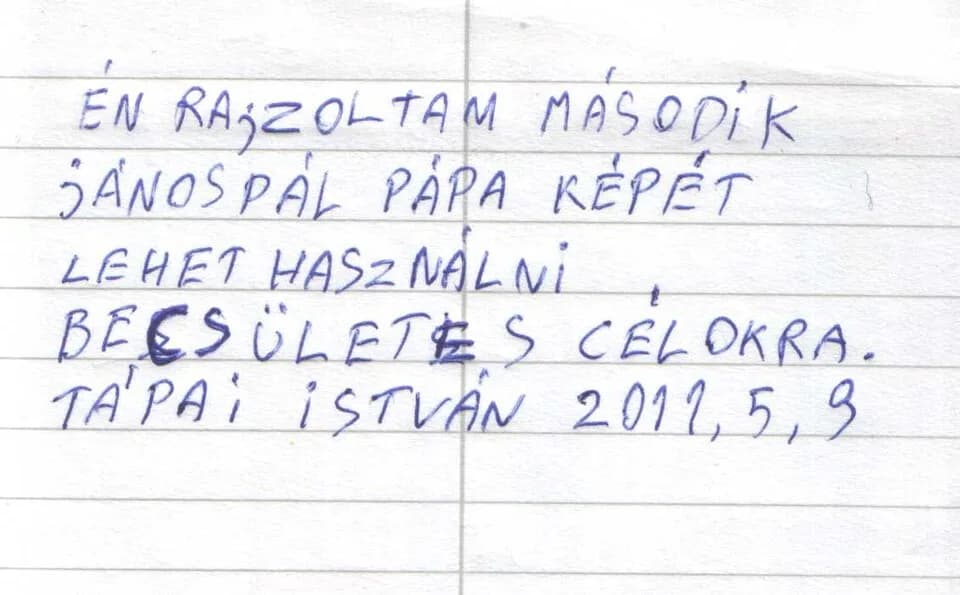 ÉN RAjZOLTAM MÁSODiK
jÁNOSPÁL PÁPA KÉPÉT
LEHET HASZNÁLNi
BECSÜLETES CÉLOKRA.
TÁPAi iSTVÁN 2011, 5, 9